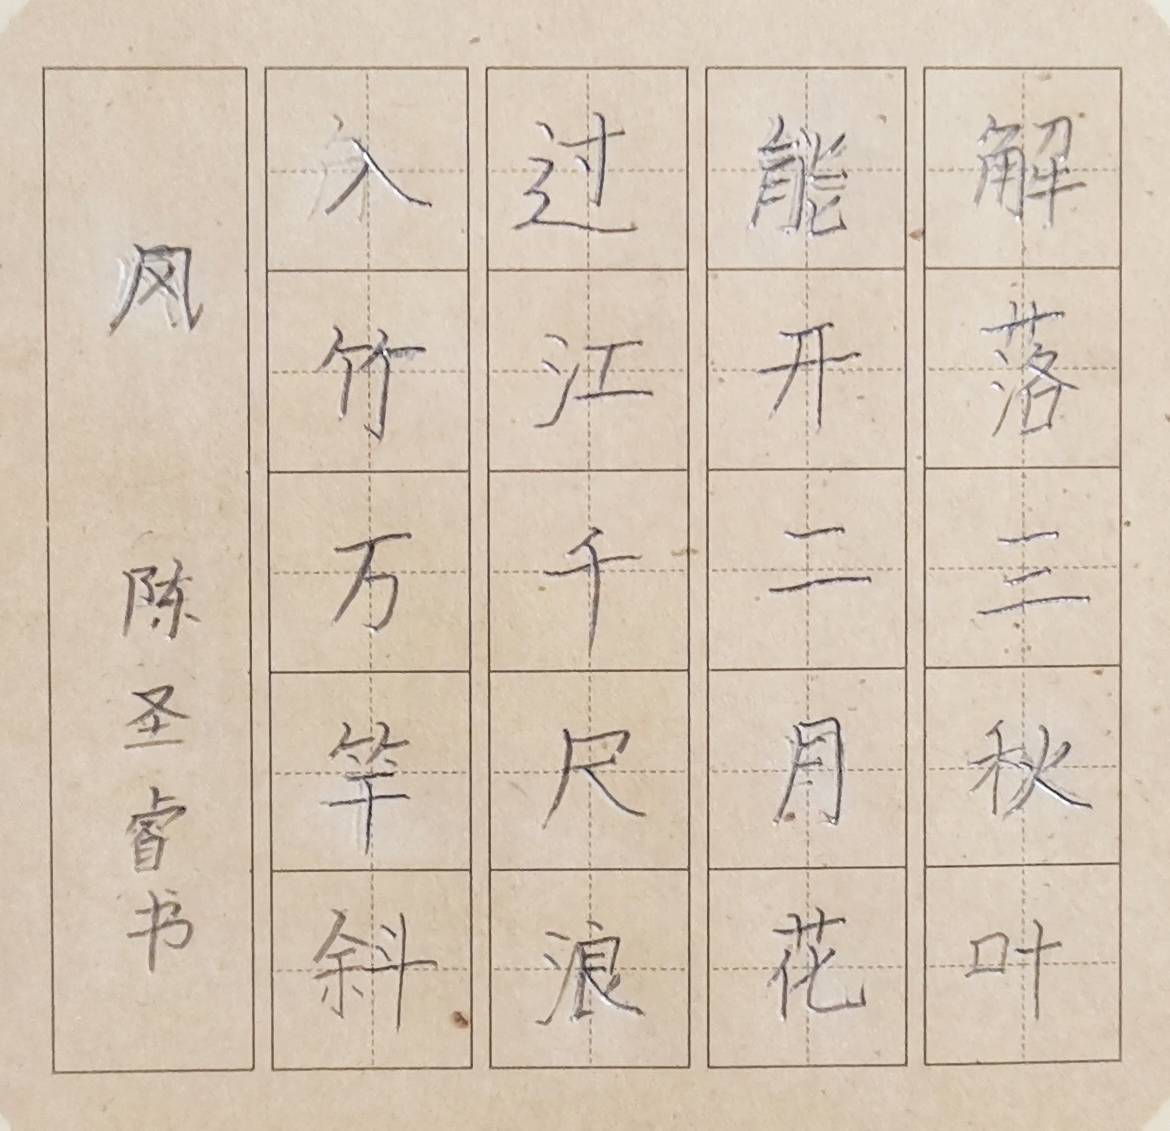 解落三秋叶
能开二月花
过江千尺浪
入竹万竿斜
风 陈圣睿书